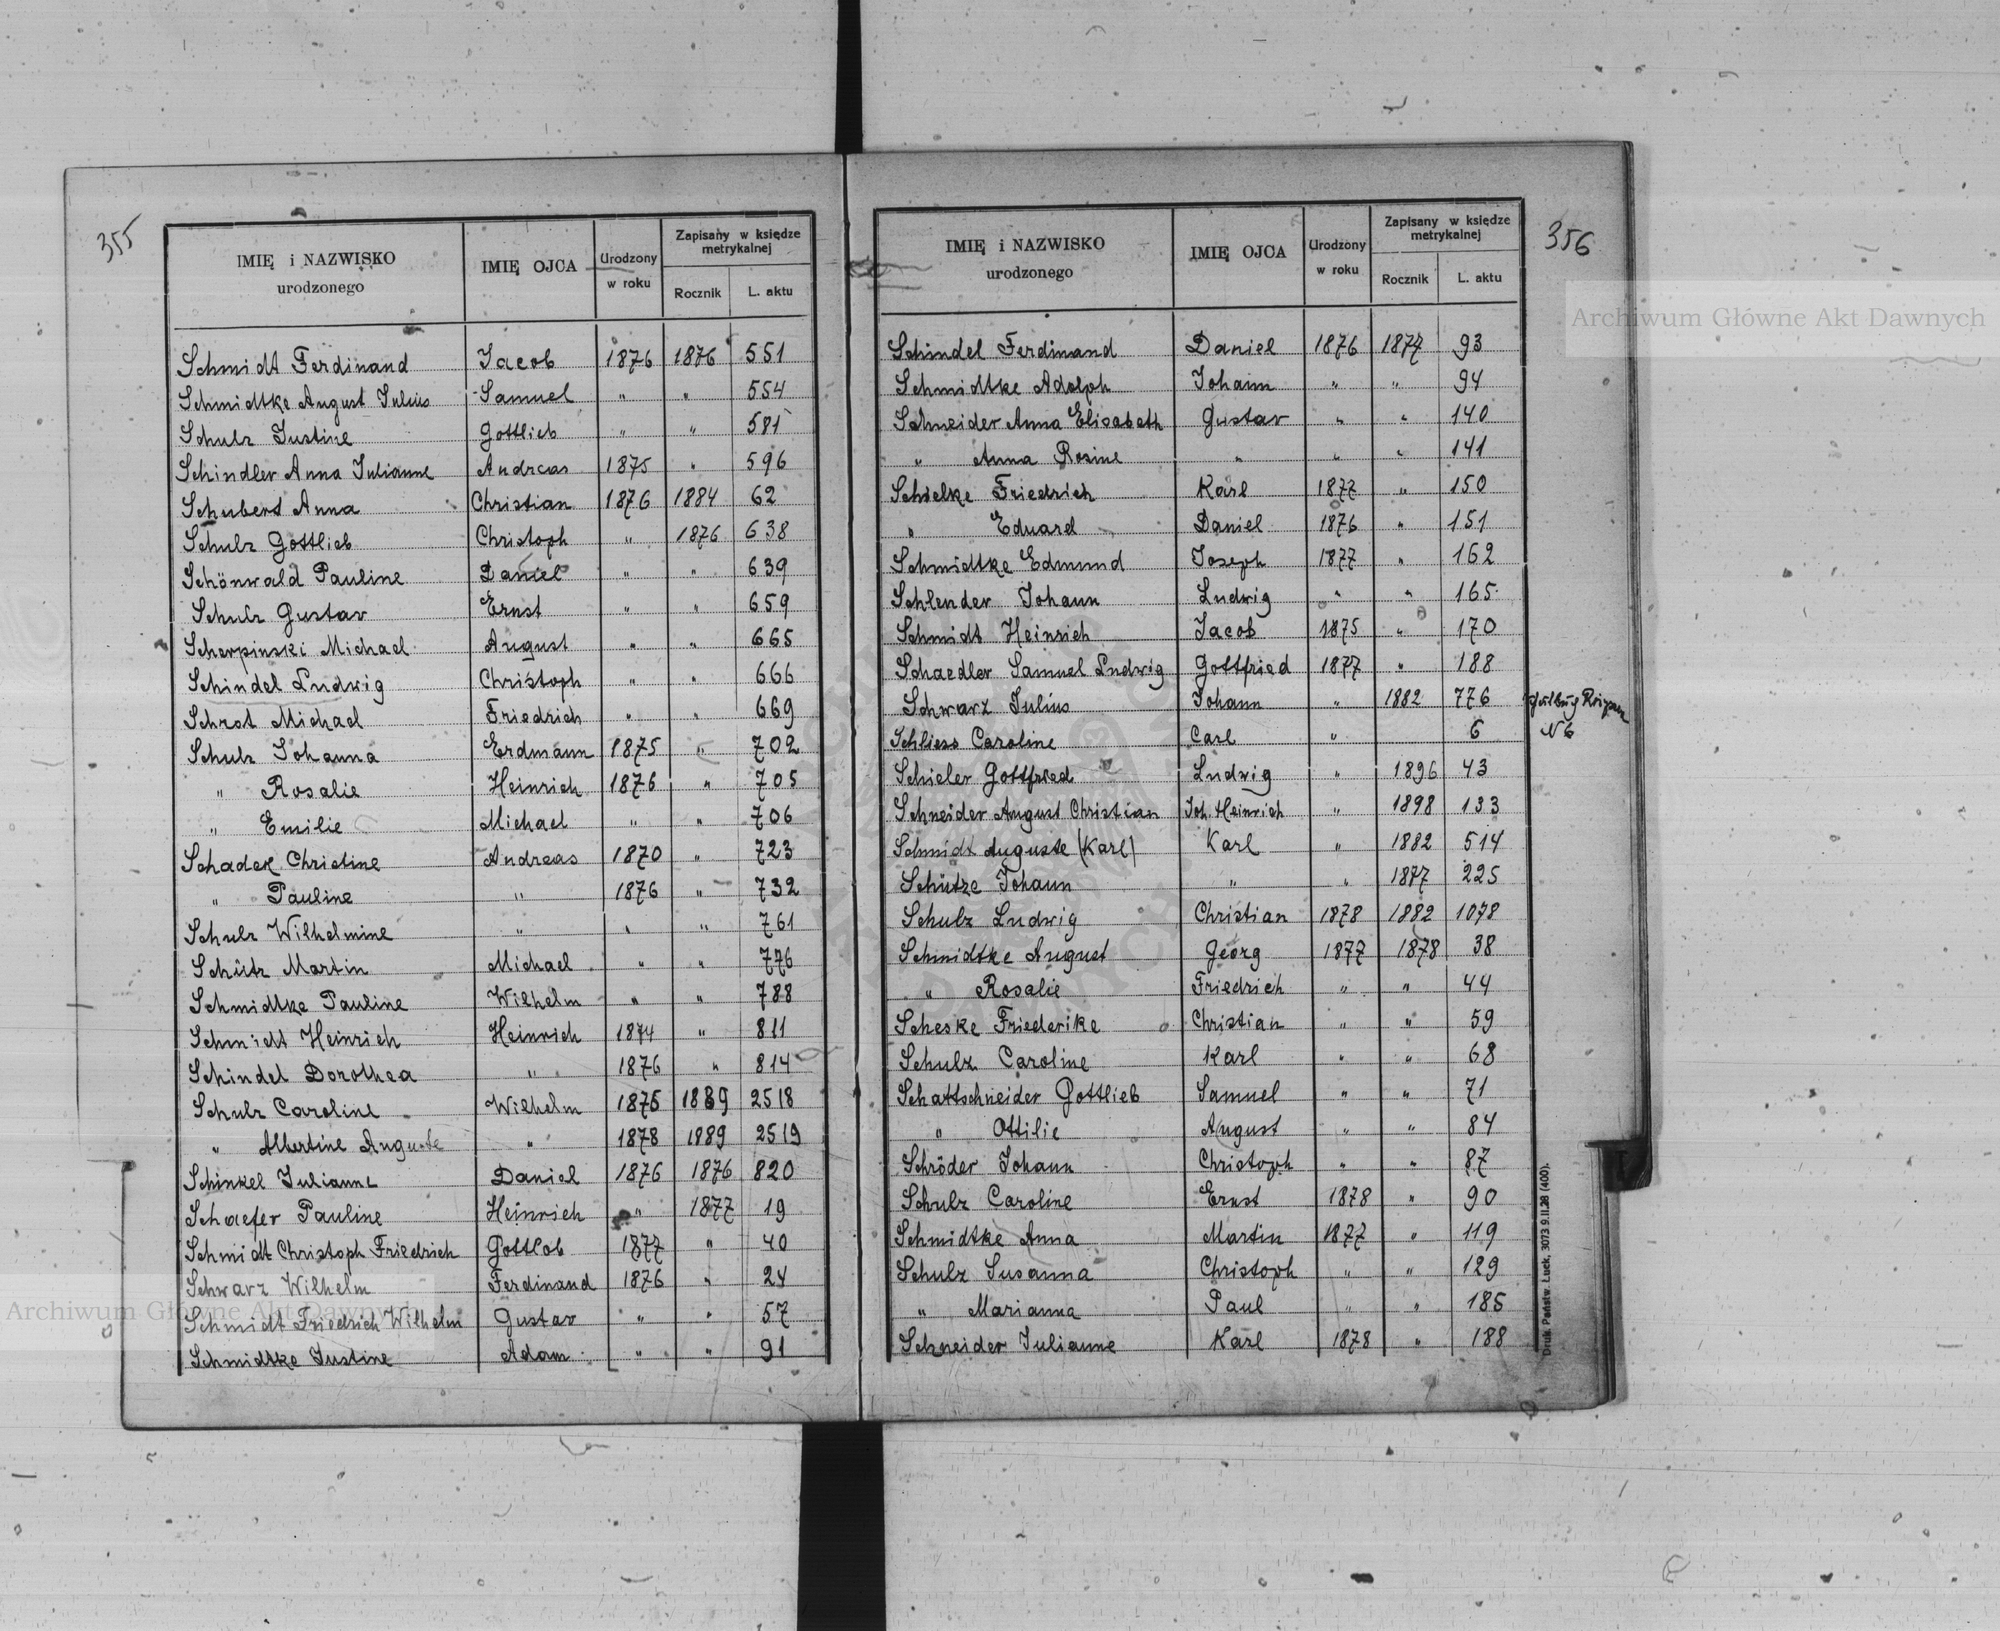 355
IMIĘ i NAZWISKO urodzonego | IMIĘ OJCA | Urodzony w roku | Zapisany w księdze metrykalnej
Rocznik | L. aktu
Schmidt Ferdinand | Jacob | 1876 | 1876 | 551
Schmidtke August Julius | Samuel | " | " | 554
Schulz Justine | Gottlieb | " | " | 581
Schindler Anna Julianne | Andreas | 1875 | " | 596
Schubert Anna | Christian | 1876 | 1884 | 62
Schulz Gottlieb | Christoph | " | 1876 | 638
Schönwald Pauline | Daniel | " | " | 639
Schulz Gustav | Ernst | " | " | 659
Scherpinski Michael | August | " | " | 665
Schindel Ludwig | Christoph | " | " | 666
Schrot Michael | Friedrich | " | " | 669
Schulz Johanna | Erdmann | 1875 | " | 702
" Rosalie | Heinrich | 1876 | " | 705
" Emilie | Michael | " | " | 706
Schadek Christine | Andreas | 1870 | " | 723
" Pauline | " | 1876 | " | 732
Schulz Wilhelmine | " | " | " | 761
Schütz Martin | Michael | " | " | 776
Schmidtke Pauline | Wilhelm | " | " | 788
Schmidt Heinrich | Heinrich | 1874 | " | 811
Schindel Dorothea | " | 1876 | " | 814
Schulz Caroline | Wilhelm | 1876 | 1889 | 2518
" Albertine Auguste | " | 1878 | 1889 | 2519
Schinkel Julianne | Daniel | 1876 | 1876 | 820
Schaefer Pauline | Heinrich | " | 1877 | 19
Schmidt Christoph Friedrich | Gottlob | 1877 | " | 40
Schwarz Wilhelm | Ferdinand | 1876 | " | 24
Schmidt Friedrich Wilhelm | Gustav | " | " | 57
Schmidtke Justine | Adam | " | " | 91
356
IMIĘ i NAZWISKO urodzonego | IMIĘ OJCA | Urodzony w roku | Zapisany w księdze metrykalnej
Rocznik | L. aktu
Schindel Ferdinand | Daniel | 1876 | 1877 | 93
Schmidtke Adolph | Johann | " | " | 94
Schneider Anna Elisabeth | Gustav | " | " | 140
" Anna Rosine | " | " | " | 141
Schielke Friedrich | Karl | 1877 | " | 150
" Eduard | Daniel | 1876 | " | 151
Schmidtke Edmund | Joseph | 1877 | " | 162
Schlender Johann | Ludwig | " | " | 165
Schmidt Heinrich | Jacob | 1875 | " | 170
Schaedler Samuel Ludwig | Gottfried | 1877 | " | 188
Schwarz Julius | Johann | " | 1882 | 776
Schliess Caroline | Carl | " | 6 | N 6
Schieler Gottfried | Ludwig | " | 1896 | 43
Schneider August Christian | Joh. Heinrich | " | 1898 | 133
Schmidt Auguste (Karl) | Karl | " | 1882 | 514
Schütze Johann | " | " | 1877 | 225
Schulz Ludwig | Christian | 1878 | 1882 | 1078
Schmidtke August | Georg | 1877 | 1878 | 38
" Rosalie | Friedrich | " | " | 44
Scheske Friederike | Christian | " | " | 59
Schulz Caroline | Karl | " | " | 68
Schattschneider Gottlieb | Samuel | " | " | 71
" Ottilie | August | " | " | 84
Schröder Johann | Christoph | " | " | 87
Schulz Caroline | Ernst | 1878 | " | 90
Schmidtke Anna | Martin | 1877 | " | 119
Schulz Susanna | Christoph | " | " | 129
" Marianna | Paul | " | " | 185
Schneider Julianne | Karl | 1878 | " | 188
Druk. Państw. Łuck, 3073 9.II.28 (400).
Archiwum Główne Akt Dawnych
Archiwum Główne Akt Dawnych